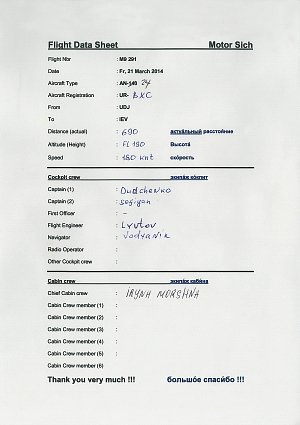 Flight Data Sheet Motor Sich
Flight Nbr : M9 291
Date : Fr, 21 March 2014
Aircraft Type : AN-140 24
Aircraft Registration : UR- BXC
From : UDJ
To : IEV
Distance (actual) : 690 актуа́льный расстоя́ние
Altitude (Height) : FL 190 Высота́
Speed : 180 knt ско́рость
Cockpit crew экипа́ж ко́кпит
Captain (1) : Dudchenko
Captain (2) :
First Officer : -
Flight Engineer : Lyutov
Navigator : Vodyanik
Radio Operator :
Other Cockpit crew :
Cabin crew экипа́ж каби́на
Chief Cabin crew : IRYNA MORSHNA
Cabin Crew member (1) :
Cabin Crew member (2) :
Cabin Crew member (3) :
Cabin Crew member (4) :
Cabin Crew member (5) :
Cabin Crew member (6)
Thank you very much !!! большо́е спаси́бо !!!